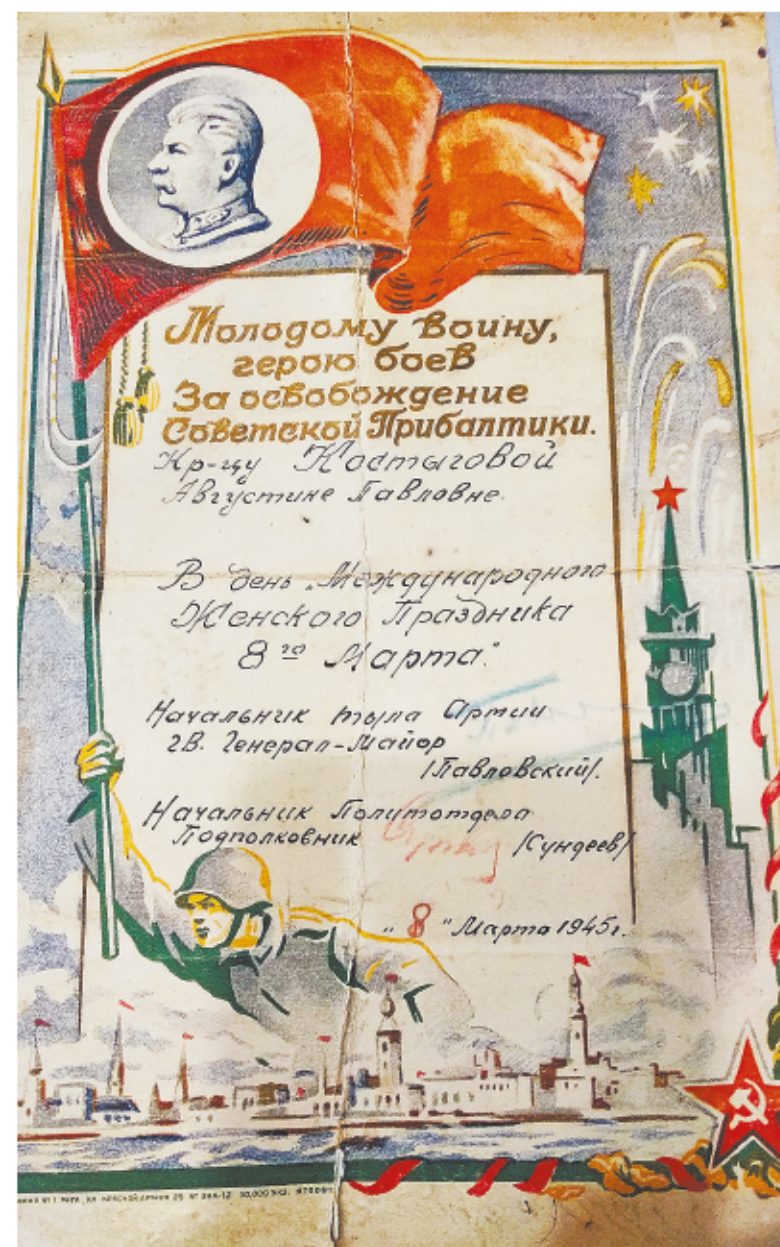 Молодому воину,
герою боев
За освобождение
Советской Прибалтики.
Кр-цу Костыговой
Августине Павловне.
В день "Международного
Женского Праздника
8го Марта".
Начальник тыла Армии
гв. Генерал-Майор
/Павловский/.
Начальник Политотдела
Подполковник /Сундеев/
"8" Марта 1945г.